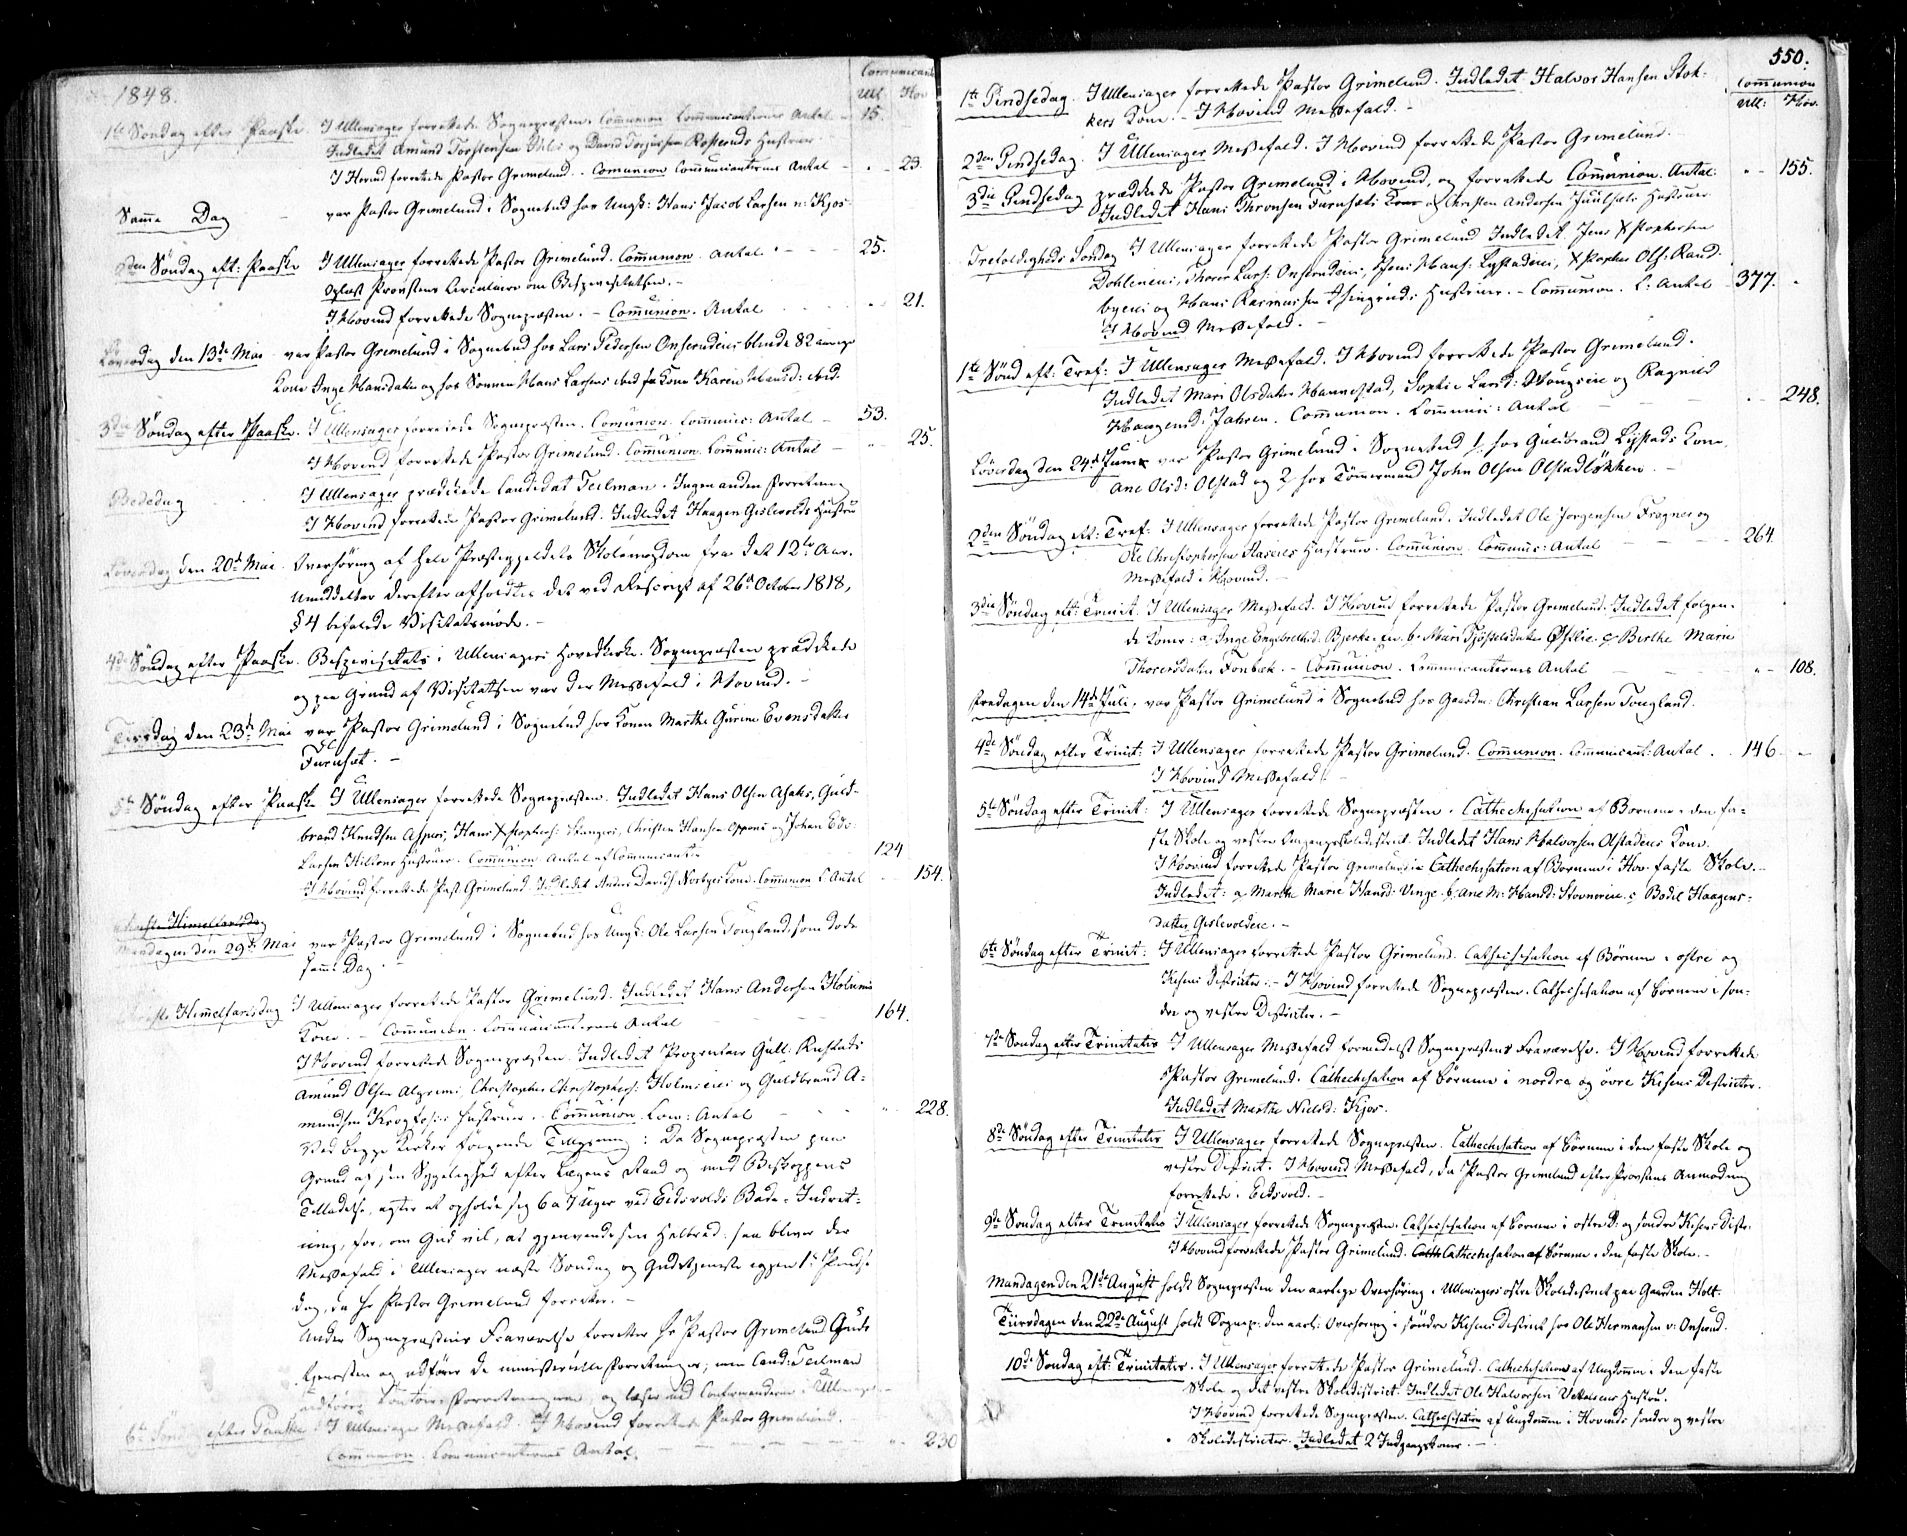 1848.
Communicant
Ull: Hov
1ste Søndag efter Paaske. I Ullensager forrettede Sognepræsten. Communion Communicanternes Antal – 15.
Indledet Amund Torstensen og David Hustruer
I Hovind forrettede Pastor Grimelund. Communion Communicanternes Antal – 23.
Samme Dag var Pastor Grimelund i Sognebud hos Ungk: Hans Jacob Larsen n: Kjos
2den Søndag eft: Paaske I Ullensager forrettede Pastor Grimelund. Communion. Antal – 25.
Oplæst Provstens Circulaire om Bispevisitatsen. –
I Hovind forrettede Sognepræsten. – Communion. Antal 21.
Løverdag den 13de Mai var Pastor Grimelund i Sognebud hos Lars Pedersen Onsrudeies blinde 82 aarige
Kone Inge Hansdatter og hos Sønnen Hans Larsens ibid Kone Karen Hansd: ibid.
3die Søndag efter Paaske. I Ullensager forrettede Sognepræsten. Communion. Communic: Antal – 53.
I Hovind forrettede Pastor Grimelund. Communion. Communic: Antal – 25.
Bededag I Ullensager prædikede Candidat Teilman. Ingen anden Forretning
I Hovind forrettede Pastor Grimelund. Indledet Haagen Gislevolds Hustru
Løverdag den 20de Mai. Overhøring af hele Præstegjeldets Skoleungdom fra det 12te Aar.
Umiddelbar derefter afholdtes det ved Rescript af 26de October 1818,
§ 4 befalede Visitatsmøde. –
4de Søndag efter Paaske. Bispevisitats i Ullensagers Hovedkirke. Sognepræsten prædikede
og paa Grund af Visitatsen var der Messefald i Hovind. –
Tirsdag den 23de Mai var Pastor Grimelund i Sognebud hos Konen Marthe Gurine Evensdatter
Furuset. –
5te Søndag efter Paaske I Ullensager forrettede Sognepræsten. Indledet Hans Olsen Asaks, Guld-
brand Knudsen Aspers, Hans Xstophers: Stangers, Christen Hansen Oppens og Johan Edv:
Larsen Hiltons Hustruer. Communion Antal af Communicanter 124
I Hovind forrettede Past: Grimelund. Indledet Anders Davids: Norbyes Kone. Communion C: Antal – 154.
Christi Himmelfartsdag
Mandagen den 29de Mai var Pastor Grimelund i Sognebud hos Ungk: Ole Larsen Tougland, som døde
samme Dag. –
Christi Himmelfartsdag I Ullensager forrettede Pastor Grimelund. Indledet Hans Andersen Holums
Kone. – Communion. Communicanternes Antal 164.
I Hovind forrettede Sognepræsten. Indledet Proprietær Gull: Rustads
Amund Olsen Algrims, Christopher Christophers: Holmseies og Guldbrand A-
mundsen Krogfosses Hustruer. – Communion. Com: Antal – 228.
Ved begge Kirker følgende Tillysning: Da Sognepræsten paa
Grund af sin Sygelighed efter Lægens Raad og med Biskoppens
Tilladelse, agter at opholde sig 6 a 7 Uger ved Eidsvolds Bade-Indret-
ning, for, om Gud vil, at gjenvinde sin Helbred: saa bliver der
Messefald i Ullensager næste Søndag og Gudstjeneste igjen 1ste Pindse
dag, da Hr Pastor Grimelund forretter. –
Under Sognepræstens Fraværelse forretter Hr Pastor Grimelund Guds
tjenesten og udfører de ministerielle Forretninger; men Cand: Teilman
udfører Contoirforretningerne, og læser med Confirmanderne i Ullensager
6te Sønd: efter Paaske. I Ullensager Messefald. I Hovind forrettede Pastor Grimelund.
Communion. Communicanternes Antal. 230
550.
Communion
Ull: Hov.
1ste Pindsedag. I Ullensager forrettede Pastor Grimelund. Indledet Halvor Hansen Stok-
kers Kone. – I Hovind Messefald. –
2den Pindsedag. I Ullensager Messefald. I Hovind forrettede Pastor Grimelund. –
3die Pindsedag prædikede Pastor Grimelund i Hovind, og forrettede Communion. Antal: 155.
Indledet Hans Thronsen Furusets Kone og Christen Andersen Juulsets Hustruer
Trefoldigheds Søndag I Ullensager forrettede Pastor Grimelund Indledet Jens Xstophersen
Dohleneies, Thorer Lars: Onsrudeies, Jens Hans: Lystadeies, Xstopher Ols: Rand-
byeies og Hans Rasmussen Isingruds Hustruer. – Communion. C: Antal – 377.
I Hovind Messefald. –
1ste Sønd eft: Tref: I Ullensager Messefald. I Hovind forrettede Pastor Grimelund.
Indledet Mari Olsdatter Hannestad, Sophie Larsd: Hougseie og Ragnild
Haugensd. Jahren. Communion. Communic: Antal 248.
Løverdag den 24de Juni var Pastor Grimelund i Sognebud 1, hos Guldbrand Lystads Kone
Ane Olsd: Olstad og 2 hos Tømmermand John Olsen Olstadløkken. –
2den Søndag eft: Tref: I Ullensager forrettede Pastor Grimelund. Indledet Ole Jørgensen Frogner og
Ole Christophersen Hustruer. Communion. Communic: Antal 264.
Messefald i Hovind. –
3die Søndag eft: Trinit. I Ullensager Messefald. I Hovind forrettede Pastor Grimelund. Indledet følgen-
de Koner: a, Inge Engebrethsd. Bjerke. b, Mari Østlie. c, Berthe Marie
Thorersdatter Fonbæk. – Communion. Communicanternes Antal 108.
Fredagen den 14de Juli, var Pastor Grimelund i Sognebud hos Gaardm: Christian Larsen Tougland.
4de Søndag efter Trinit: I Ullensager forrettede Pastor Grimelund. Communion. Communicant: Antal . . 146
I Hovind Messefald. –
5te Søndag efter Trinit: I Ullensager forrettede Sognepræsten. Cathechisation af Børnene i den fa-
ste Skole og vestre Omgangsskoledistrict. Indledet Hans Halvorsen Olstadeies Kone.
I Hovind forrettede Pastor Grimelund Cathechisation af Børnene i Hov: faste Skole. –
Indledet: a, Marthe Marie Hansd: Unge. b, Ane M: Hansd: Hovneie. c Bodil Haagens-
datter Gislevoldeie. –
6te Søndag efter Trinit: I Ullensager forrettede Pastor Grimelund. Cathechisation af Børnene i østre og
Kisens Districter. – I Hovind forrettede Sognepræsten. Cathechisation af Børnene i søn-
dre og vestre Districter. –
7de Søndag efter Trinitatis I Ullensager Messefald formedelst Sognepræstens Fraværelse. I Hovind forrettede
Pastor Grimelund. Cathechisation af Børnene i nordre og øvre Kisens Districter.
Indledet Marthe Nielsd: Kjos.
8de Søndag efter Trinitatis I Ullensager forrettede Sognepræsten. Cathechisation af Børnene i den faste Skole og
vestre District. I Hovind Messefald, da Pastor Grimelund efter Provstens Anmodning
forrettede i Eidsvold. –
9de Søndag efter Trinitatis I Ullensager forrettede Sognepræsten. Cathechisation af Børnene i østre D: og søndre Kisens Distr:
I Hovind forrettede Pastor Grimelund. Cath Cathechisation af Børnene i den faste Skole. –
Mandagen den 21de August holdt Sognepræsten den aarlige Overhøring i Ullensagers østre Skoledistrict paa Gaarden Holt.
Tiirsdagen den 22de August holdt Sognepr: den aarl: Overhøring i søndre Kisens District hos Ole Hermansen v: Onsrud.
10de Søndag eft: Trinitatis. I Ullensager forrettede Pastor Grimelund. Cathechisation af Ungdommen i den faste
Skole og det vestre Skoledistrict. Indledet Ole Halvorsen Hustru.
I Hovind forrettede Sognepræsten. Cathechisation af Ungdommen i Hovinds søndre og vestre
Skoledistricter. Indledet 2 Indgangskoner. –